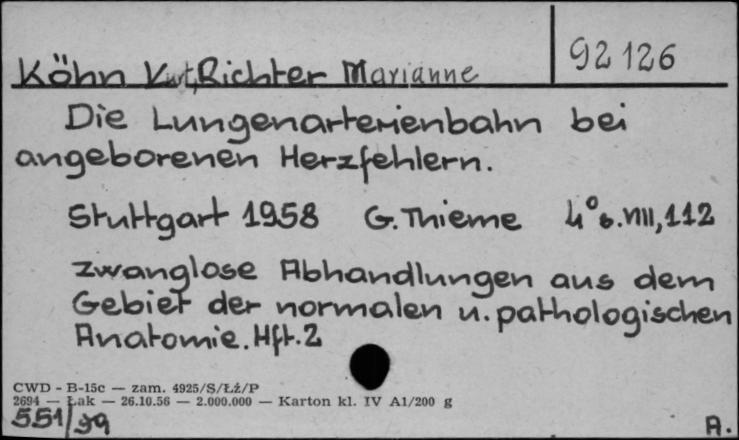 92126
Köhn Kurt, Richter Marianne
Die Lungenarterienbahn bei
angeborenen Herzfehlern.
Stuttgart 1958 G. Thieme 4° s. VIII, 112
Zwanglose Abhandlungen aus dem
Gebiet der normalen u. pathologischen
Anatomie. Hft. 2
CWD - B-15c — zam. 4925/S/Łż/P
2694 — Łak — 26.10.56 — 2.000.000 — Karton kl. IV A1/200 g
551/59
A.